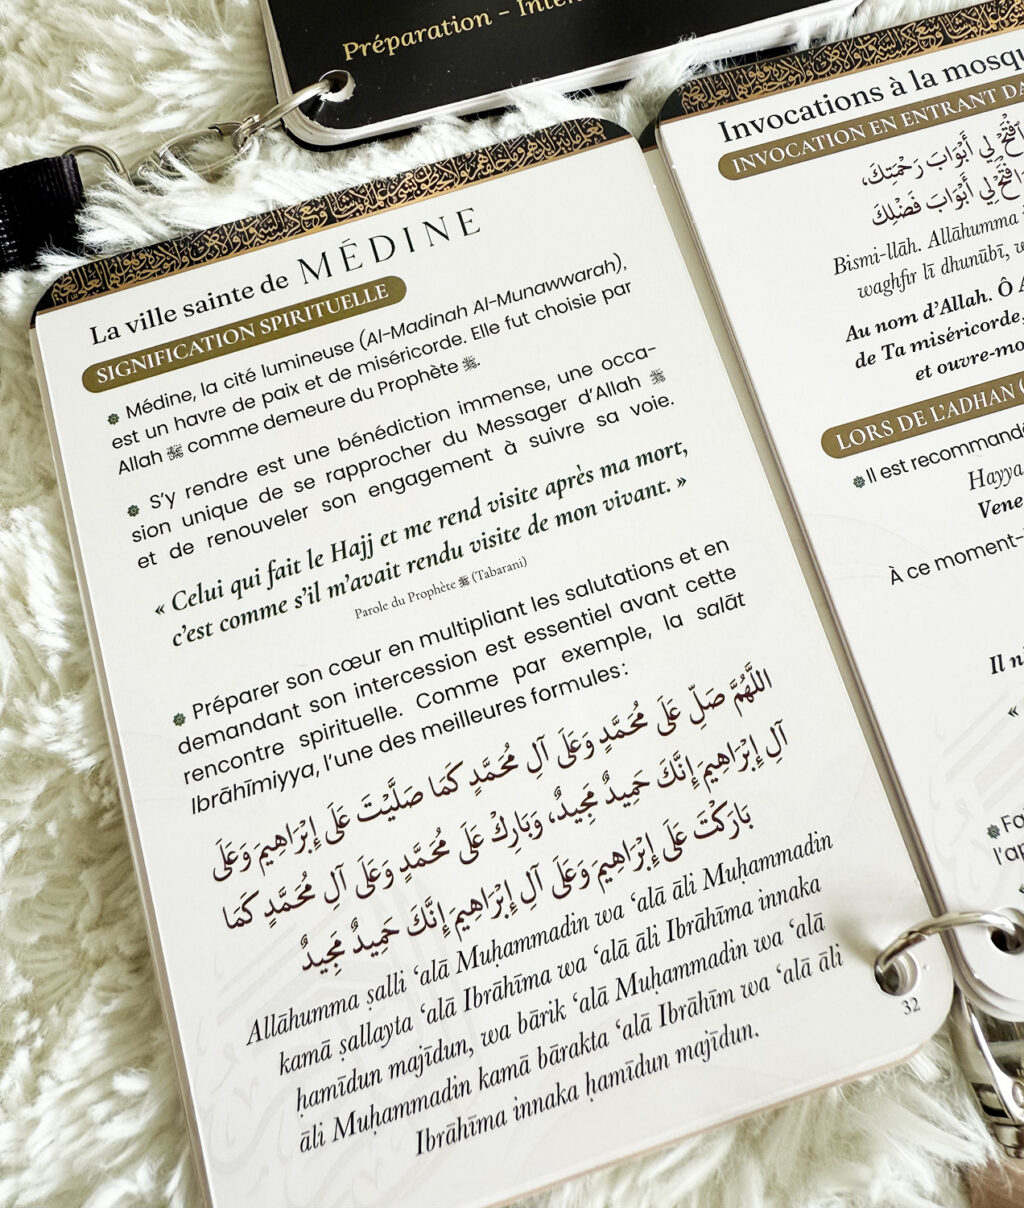 Préparation -
La ville sainte de MÉDINE
SIGNIFICATION SPIRITUELLE
Médine, la cité lumineuse (Al-Madinah Al-Munawwarah),
est un havre de paix et de miséricorde. Elle fut choisie par
Allah ﷻ comme demeure du Prophète ﷺ.
S’y rendre est une bénédiction immense, une occa-
sion unique de se rapprocher du Messager d’Allah ﷺ
et de renouveler son engagement à suivre sa voie.
« Celui qui fait le Hajj et me rend visite après ma mort,
c’est comme s’il m’avait rendu visite de mon vivant. »
Parole du Prophète ﷺ (Tabarani)
Préparer son cœur en multipliant les salutations et en
demandant son intercession est essentiel avant cette
rencontre spirituelle. Comme par exemple, la salāt
Ibrāhīmiyya, l’une des meilleures formules :
اللَّهُمَّ صَلِّ عَلَى مُحَمَّدٍ وَعَلَى آلِ مُحَمَّدٍ كَمَا صَلَّيْتَ عَلَى إِبْرَاهِيمَ وَعَلَى
آلِ إِبْرَاهِيمَ إِنَّكَ حَمِيدٌ مَجِيدٌ، وَبَارِكْ عَلَى مُحَمَّدٍ وَعَلَى آلِ مُحَمَّدٍ كَمَا
بَارَكْتَ عَلَى إِبْرَاهِيمَ وَعَلَى آلِ إِبْرَاهِيمَ إِنَّكَ حَمِيدٌ مَجِيدٌ
Allāhumma ṣalli ‘alā Muḥammadin wa ‘alā āli Muḥammadin
kamā ṣallayta ‘alā Ibrāhīma wa ‘alā āli Ibrāhīma innaka
ḥamīdun majīdun, wa bārik ‘alā Muḥammadin wa ‘alā
āli Muḥammadin kamā bārakta ‘alā Ibrāhīm wa ‘alā āli
Ibrāhīma innaka ḥamīdun majīdun.
32
Invocations à la
INVOCATION EN ENTRANT
لِي أَبْوَابَ رَحْمَتِكَ،
لِي أَبْوَابَ فَضْلِكَ
Bismi-llāh. Allāhumma
waghfir lī dhunūbī,
Au nom d’Allah. Ô
de Ta miséricorde,
et ouvre-
LORS DE L’ADHAN (
Il est
Hayya
À ce moment-
Il
«
l’